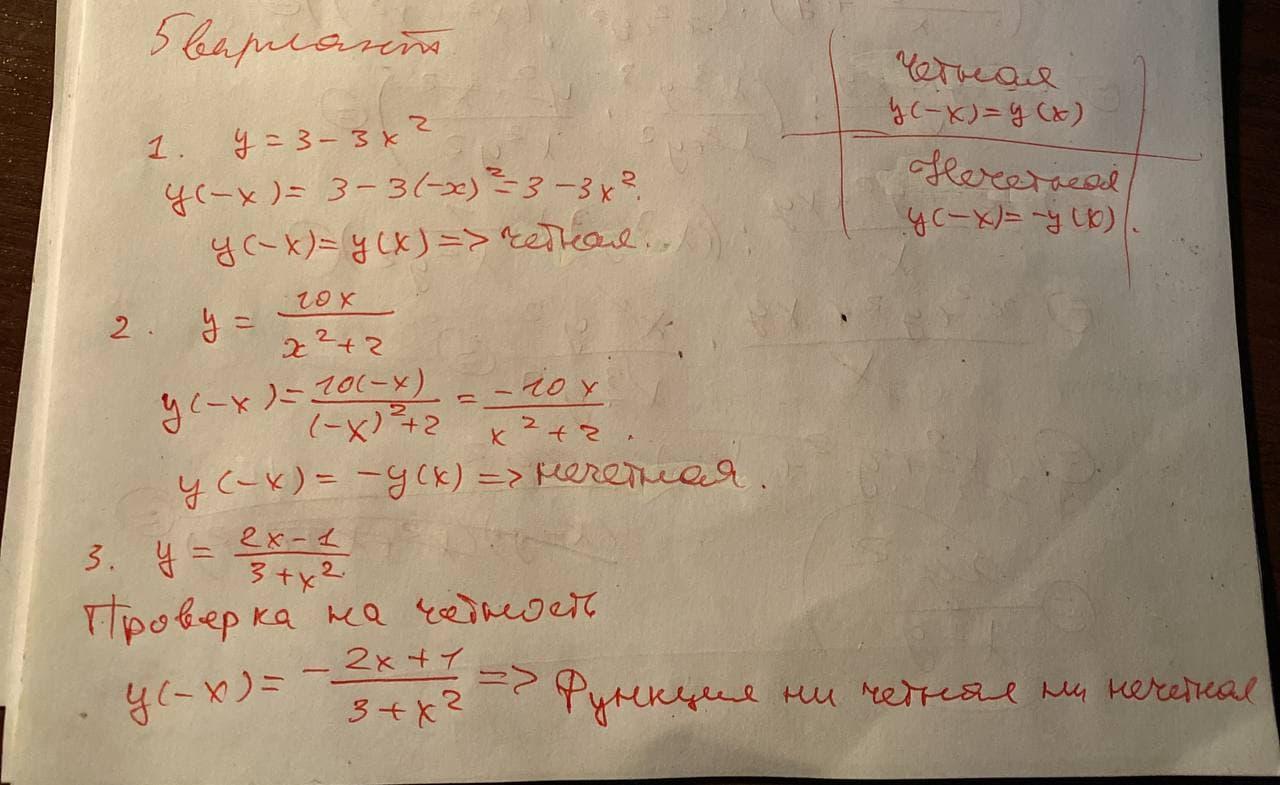 5 вариант
Четная
y(-x)=y(x)
Нечетная
y(-x)=-y(x).
1. y=3-3x²
y(-x)=3-3(-x)²=3-3x².
y(-x)=y(x)=>четная.
2. y=10x/(x²+2)
y(-x)=10(-x)/((-x)²+2)=-10x/(x²+2).
y(-x)=-y(x)=>нечетная.
3. y=(2x-1)/(3+x²)
Проверка на четность
y(-x)=-(2x+1)/(3+x²)=>Функция ни четная ни нечетная